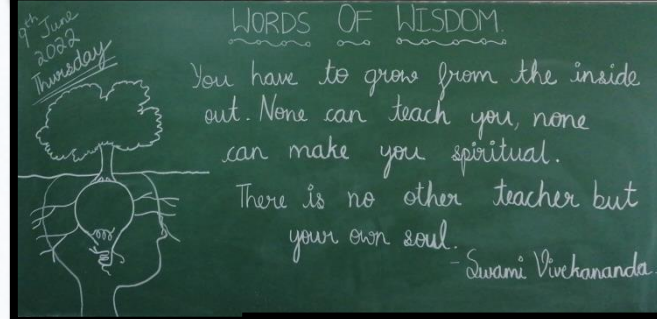 9th June
2022
Thursday
WORDS OF WISDOM.
You have to grow from the inside
out. None can teach you, none
can make you spiritual.
There is no other teacher but
your own soul.
- Swami Vivekananda.